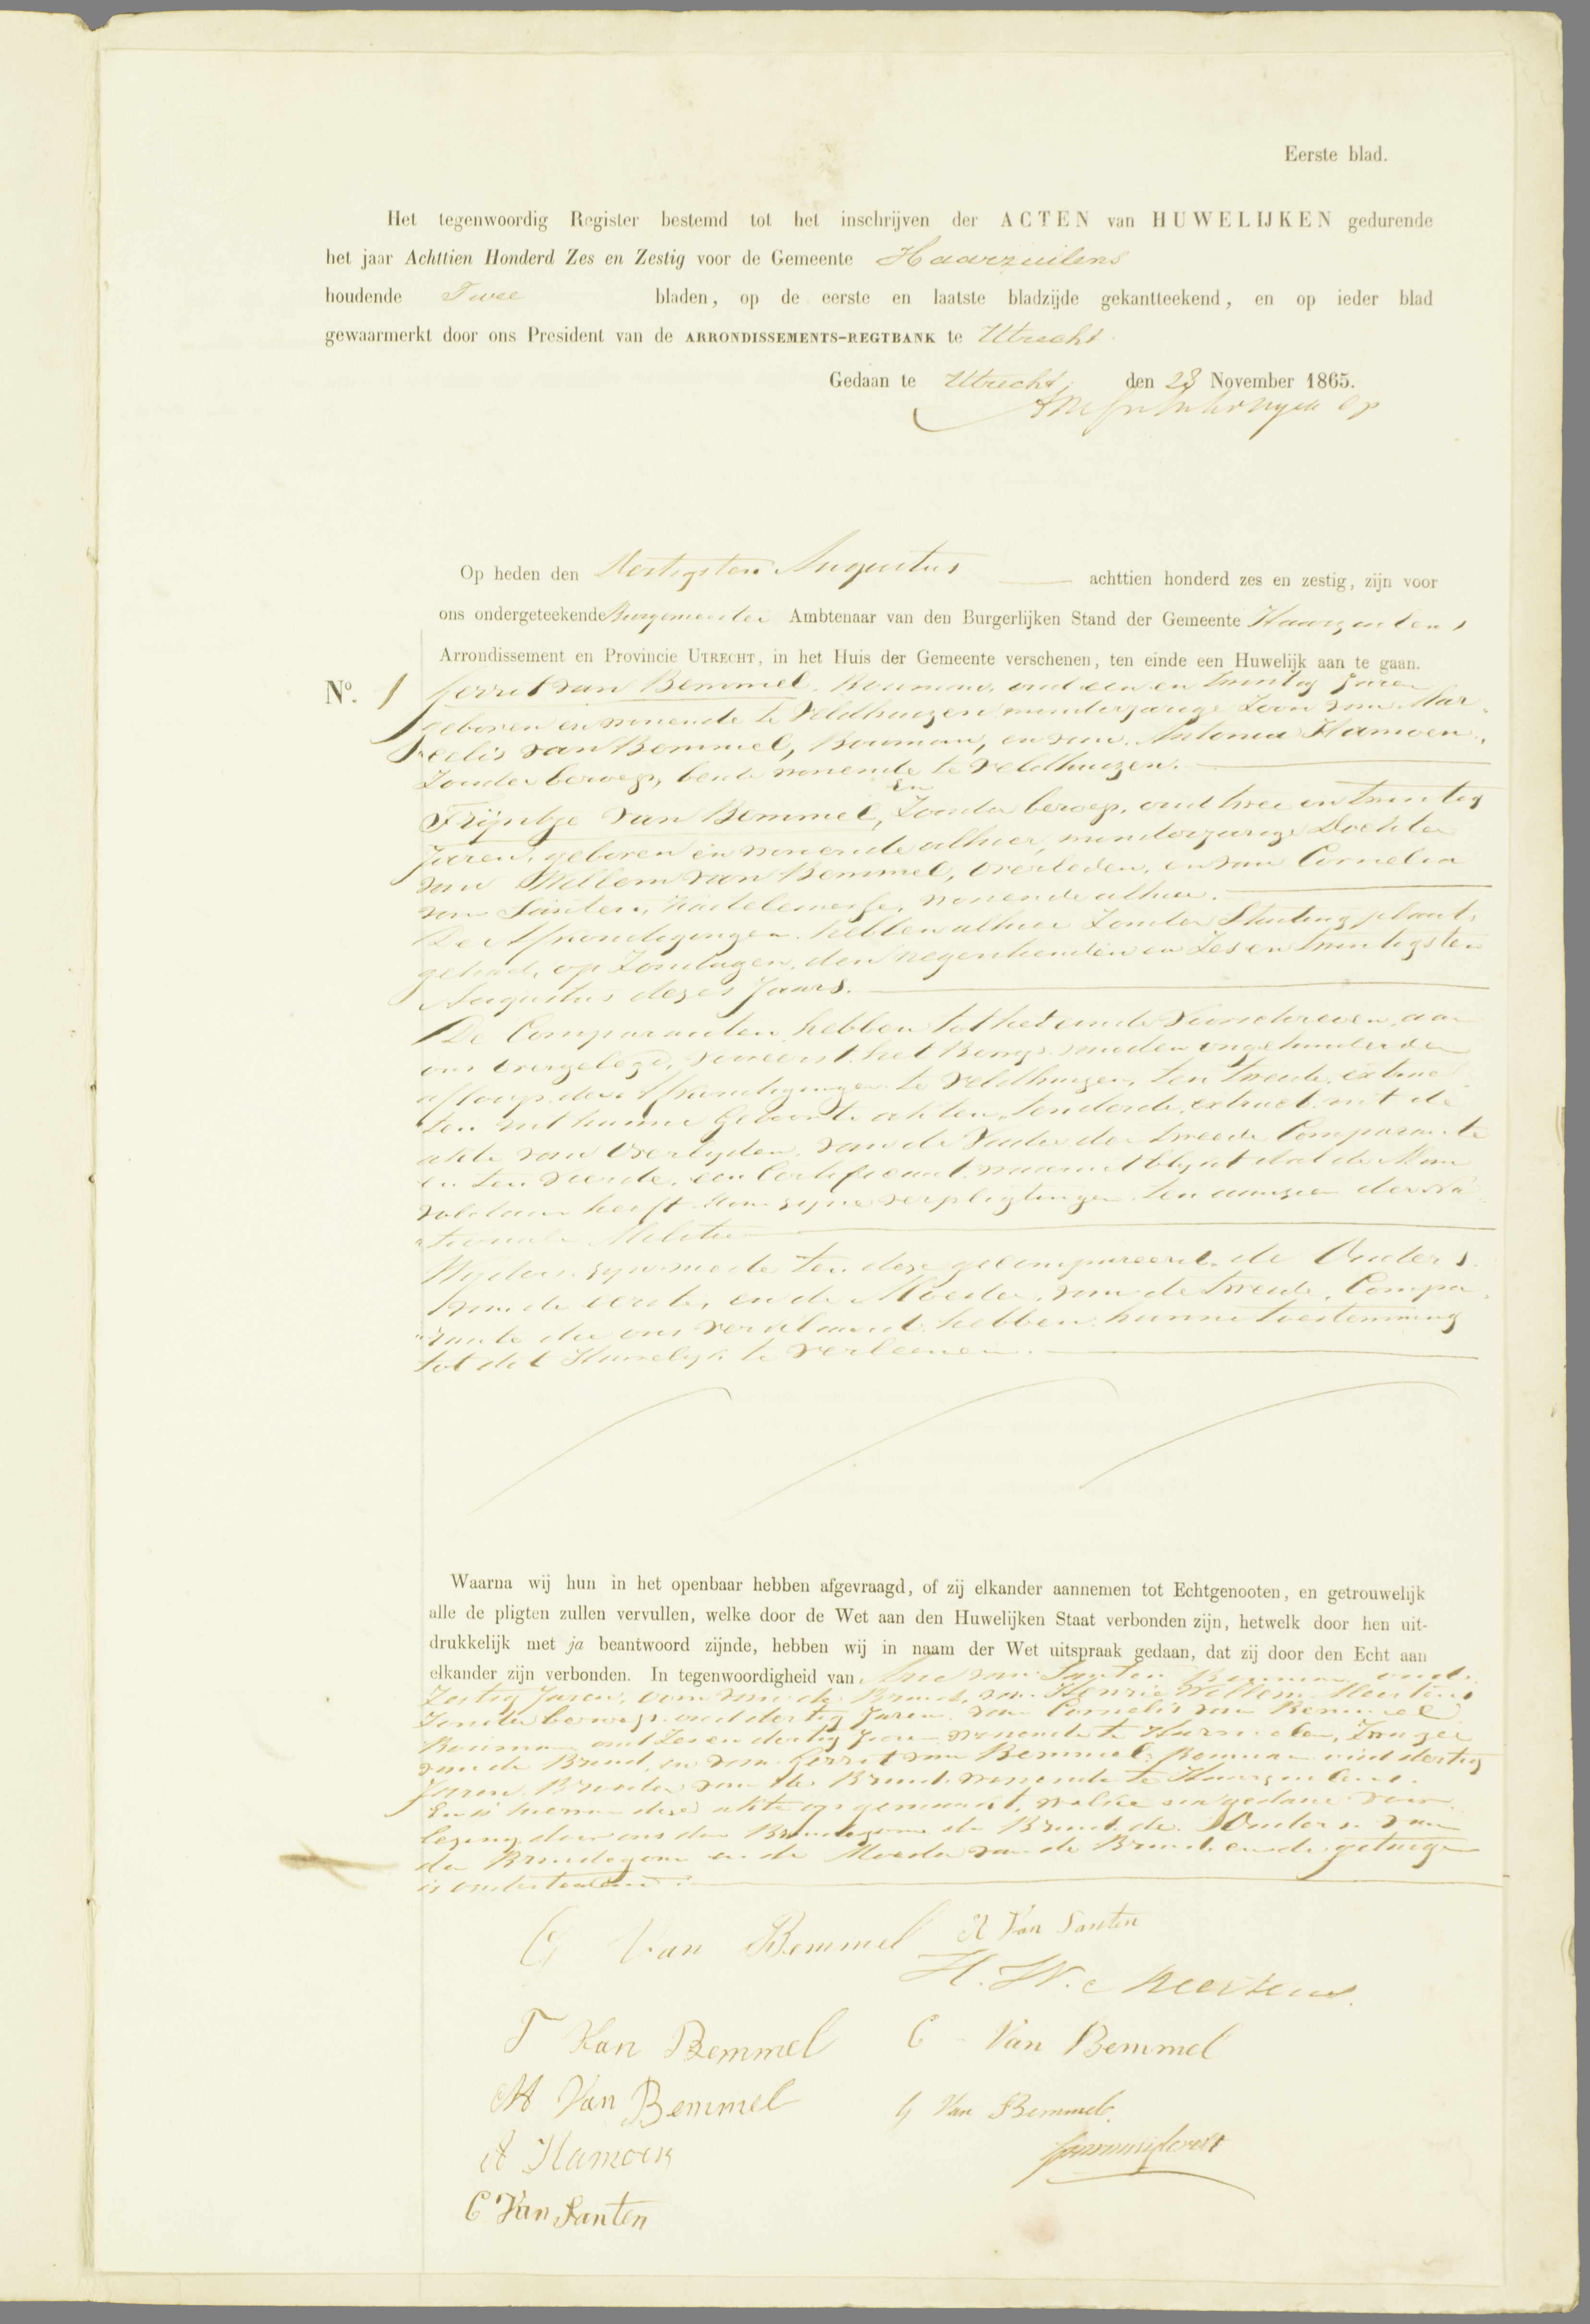 Eerste blad.
Het tegenwoordig Register bestemd tot het inschrijven der ACTEN van HUWELIJKEN gedurende
het jaar Achttien Honderd Zes en Zestig voor de Gemeente Haarzuilens
houdende Twee bladen, op de eerste en laatste bladzijde gekantteekend, en op ieder blad
gewaarmerkt door ons President van de ARRONDISSEMENTS-REGTBANK te Utrecht.
Gedaan te Utrecht, den 28 November 1865.
Op heden den dertigsten Augustus achttien honderd zes en zestig, zijn voor
ons ondergeteekende Burgemeester Ambtenaar van den Burgerlijken Stand der Gemeente Haarzuilens
Arrondissement en Provincie UTRECHT, in het Huis der Gemeente verschenen, ten einde een Huwelijk aan te gaan.
No. 1 Gerrit van Bemmel, Bouman, oud een en twintig Jaren
geboren en wonende te Veldhuizen, minderjarige Zoon van Mar-
celis van Bemmel, Bouman, en van Antonia Hamoen,
Zonder beroep, beide wonende te Veldhuizen.
en
Frijntje van Bemmel, Zonder beroep, oud twee en twintig
Jaren, geboren en wonende alhier, minderjarige Dochter
van Willem van Bemmel, overleden, en van Cornelia
van Santen, wonende alhier.
De Afkondigingen hebben alhier Zonder Stuiting plaats
gehad, op Zondagen, den negentienden en Zes en twintigsten
Augustus dezes Jaars.
De Comparanten hebben tot het einde aan
ons overgelegd, het Bewijs van den ongehinderden
afloop der Afkondigingen te Veldhuizen, ten tweede, extrac-
ten uit hunne Geboorte akten, ten derde, extract uit de
akte van overlijden van de Vader der tweede Comparante
en ten vierde, een Certificaat waaruit blijkt dat de Man
voldaan heeft aan zijne verpligtingen ten aanzien der Na-
tionale Militie
Wijders zijn mede ten deze gecompareerd de Ouders
van de eerste, en de Moeder van de tweede Compa-
rante die ons verklaard hebben hunne toestemming
tot dit Huwelijk te verleenen.
Waarna wij hun in het openbaar hebben afgevraagd, of zij elkander aannemen tot Echtgenooten, en getrouwelijk
alle de pligten zullen vervullen, welke door de Wet aan den Huwelijken Staat verbonden zijn, hetwelk door hen uit-
drukkelijk met ja beantwoord zijnde, hebben wij in naam der Wet uitspraak gedaan, dat zij door den Echt aan
elkander zijn verbonden. In tegenwoordigheid van van Santen Bouman oud
Zestig Jaren, oom van de Bruid, van Henric Willem Meertens
Zonder beroep oud dertig Jaren, van Cornelis van Bemmel
Bouman oud Zes en dertig Jaren wonende te Harmelen, Zwager
van de Bruid, en van Gerrit van Bemmel, Bouman oud dertig
Jaren, Broeder van de Bruid wonende te Haarzuilens.
En is hiervan deze akte opgemaakt, welke na gedane voor-
lezing door ons den Bruidegom de Bruid, de Ouders van
den Bruidegom en de Moeder van de Bruid en de getuigen
is onderteekend.
G Van Bemmel A Van Santen
H. W. Meertens.
T Van Bemmel C Van Bemmel
M Van Bemmel G Van Bemmel
A Hamoen
C Van Santen